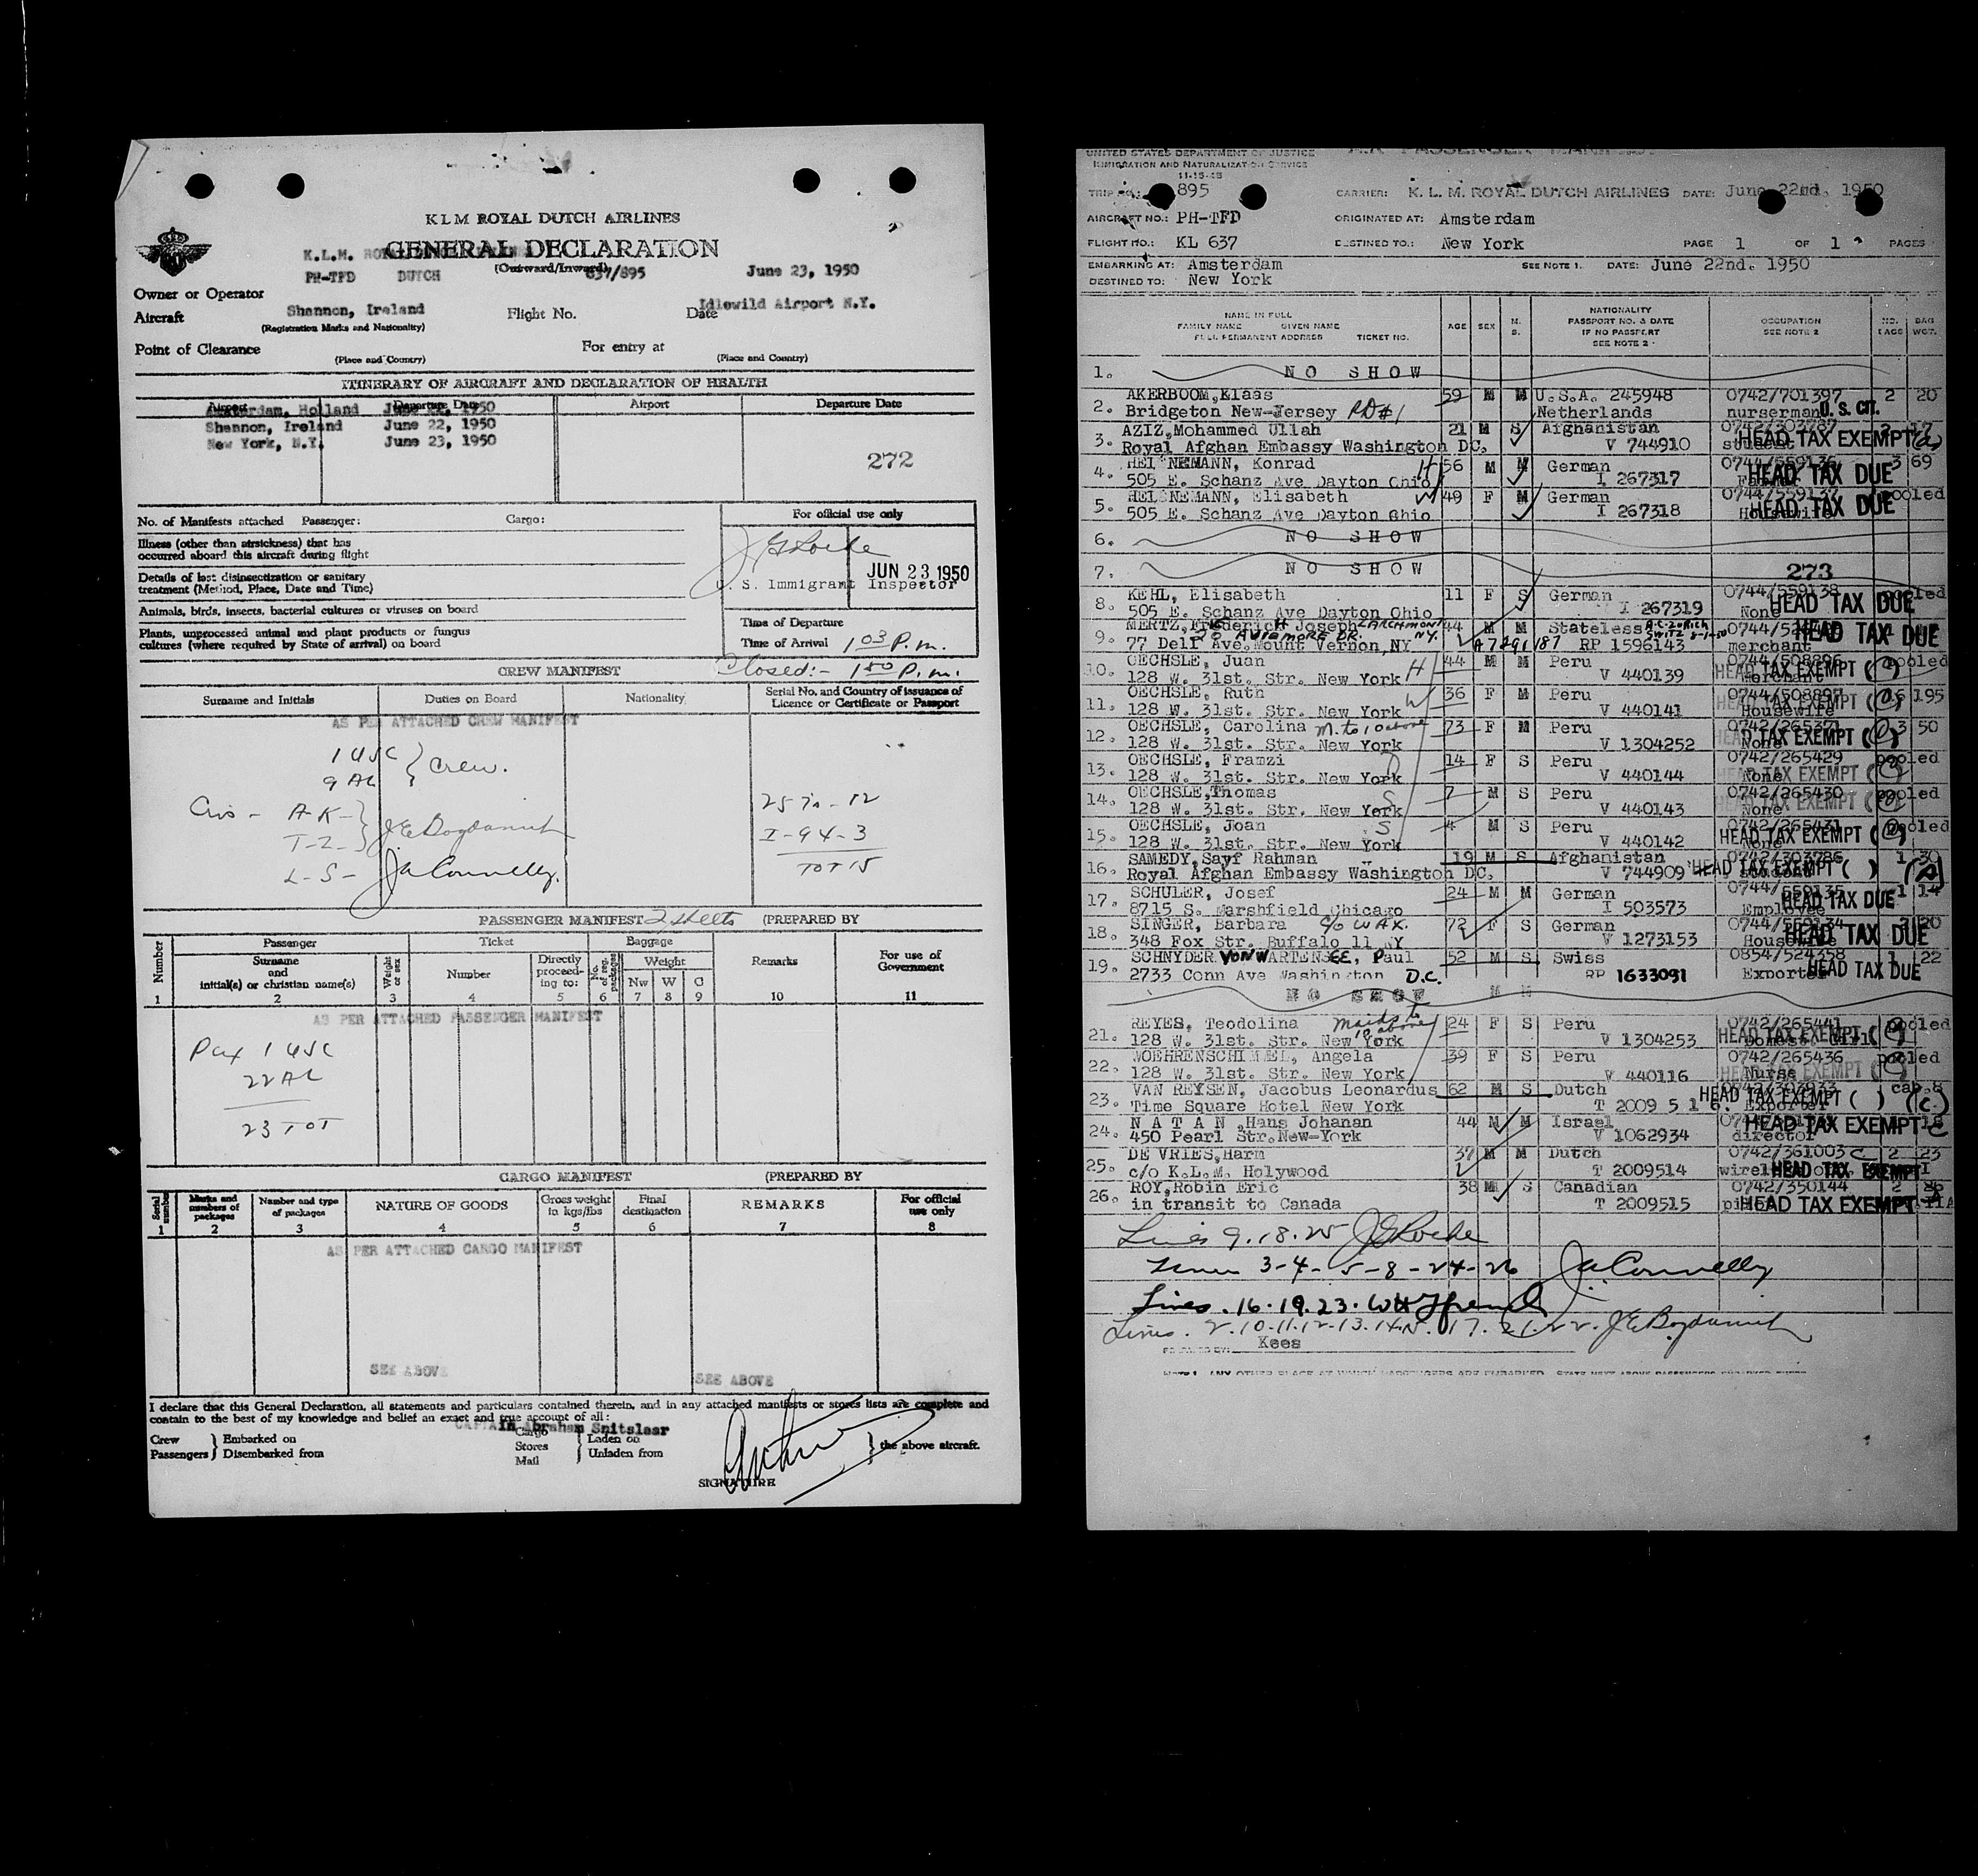 KLM ROYAL DUTCH AIRLINES
GENERAL DECLARATION
(Outward/Inward)
K.L.M.
PH-TFD DUTCH 637/895 June 23, 1950
Owner or Operator
Aircraft Shannon, Ireland Flight No. Date Idlewild Airport N.Y.
(Registration Marks and Nationality)
Point of Clearance For entry at
(Place and Country) (Place and Country)
ITINERARY OF AIRCRAFT AND DECLARATION OF HEALTH
Airport Departure Date Airport Departure Date
Amsterdam, Holland June 22, 1950
Shannon, Ireland June 22, 1950
New York, N.Y. June 23, 1950
272
No. of Manifests attached Passenger: Cargo:
For official use only
Illness (other than airsickness) that has
occurred aboard this aircraft during flight
Details of last disinsectization or sanitary
treatment (Method, Place, Date and Time)
JUN 23 1950
U. S. Immigrant Inspector
Animals, birds, insects, bacterial cultures or viruses on board
Plants, unprocessed animal and plant products or fungus
cultures (where required by State of arrival) on board
Time of Departure
Time of Arrival 1 03 P.m.
Closed:- 1 50 P.m.
CREW MANIFEST
Surname and Initials Duties on Board Nationality Serial No. and Country of issuance of
Licence or Certificate or Passport
AS PER ATTACHED CREW MANIFEST
1 USC
9 AL } Crew.
A-K-
T-Z- JEBogdanich
L-S- JA Connelly.
I-94-3
TOT 15
PASSENGER MANIFEST 2 sheets (PREPARED BY
Number Passenger Ticket Baggage Remarks For use of
Government
Surname
and
initial(s) or christian name(s) Weight or sex Number Directly
proceed-
ing to: No. of reg. packages Weight
Nw W C
1 2 3 4 5 6 7 8 9 10 11
AS PER ATTACHED PASSENGER MANIFEST
Pax 1 USC
22 AL
23 TOT
CARGO MANIFEST (PREPARED BY
Serial number Marks and
numbers of
packages Number and type
of packages NATURE OF GOODS Gross weight
in kgs/lbs Final
destination REMARKS For official
use only
1 2 3 4 5 6 7 8
AS PER ATTACHED CARGO MANIFEST
SEE ABOVE SEE ABOVE
I declare that this General Declaration, all statements and particulars contained therein, and in any attached manifests or stores lists are complete and
contain to the best of my knowledge and belief an exact and true account of all:
CAPTAIN Abraham Snitslaar
Crew } Embarked on Cargo } Laden on
Passengers } Disembarked from Stores Unladen from } the above aircraft.
Mail
SIGNATURE
UNITED STATES DEPARTMENT OF JUSTICE
IMMIGRATION AND NATURALIZATION SERVICE
11-15-45
TRIP NO.: 895 CARRIER: K. L. M. ROYAL DUTCH AIRLINES DATE: June 22nd. 1950
AIRCRAFT NO.: PH-TFD ORIGINATED AT: Amsterdam
FLIGHT NO.: KL 637 DESTINED TO.: New York PAGE 1 OF 1 PAGES
EMBARKING AT: Amsterdam SEE NOTE 1. DATE: June 22nd. 1950
DESTINED TO: New York
NAME IN FULL
FAMILY NAME GIVEN NAME
FULL PERMANENT ADDRESS TICKET NO. AGE SEX M. S. NATIONALITY
PASSPORT NO. & DATE
IF NO PASSPORT
SEE NOTE 2 OCCUPATION
SEE NOTE 2 NO. BAGS BAG WGT.
1. NO SHOW
2. AKERBOOM,Klaas 59 M M U.S.A. 245948 0742/701397 2 20
Bridgeton New-Jersey RD#1 Netherlands nurserman U.S. CIT.
3. AZIZ,Mohammed Ullah 21 M S Afghanistan 0742/303787 17
Royal Afghan Embassy Washington DC. V 744910 HEAD TAX EXEMPT
4. HEINEMANN, Konrad H 56 M M German 0744/559136 3 69
505 E. Schanz Ave Dayton Ohio I 267317 HEAD TAX DUE
5. HEINEMANN, Elisabeth W 49 F M German 0744/559137 pooled
505 E. Schanz Ave Dayton Ohio I 267318 Housewife HEAD TAX DUE
6. NO SHOW
7. NO SHOW 273
8. KEHL, Elisabeth 11 F S German 0744/559138 pooled
505 E. Schanz Ave Dayton Ohio I 267319 None HEAD TAX DUE
9. MERTZ, Frederick H Joseph LARCHMONT N.Y. 44 M M Stateless
77 Dell Ave.Mount Vernon,NY A7291187 RP 1596143 merchant HEAD TAX DUE
10. OECHSLE, Juan H 44 M M Peru 0744/508896 pooled
128 W. 31st. Str. New York V 440139 Merchant HEAD TAX EXEMPT
11. OECHSLE, Ruth W 36 F M Peru 0744/508897 16 195
128 W. 31st. Str. New York V 440141 Housewife HEAD TAX EXEMPT
12. OECHSLE, Carolina M. to 10 above 73 F M Peru 0742/265371 3 50
128 W. 31st. Str. New York V 1304252 None HEAD TAX EXEMPT
13. OECHSLE, Framzi D 14 F S Peru 0742/265429 pooled
128 W. 31st. Str. New York V 440144 None HEAD TAX EXEMPT
14. OECHSLE,Thomas S 7 M S Peru 0742/265430 pooled
128 W. 31st. Str. New York V 440143 None HEAD TAX EXEMPT
15. OECHSLE, Joan S 4 M S Peru 0742/265431 pooled
128 W. 31st. Str. New York V 440142 None HEAD TAX EXEMPT
16. SAMEDY,Sayf Rahman 19 M S Afghanistan 0742/303786 1 30
Royal Afghan Embassy Washington DC. V 744909 HEAD TAX EXEMPT ( ) (A)
17. SCHULER, Josef 24 M M German 0744/559135 1 14
8715 S. Marshfield Chicago I 503573 Employee HEAD TAX DUE
18. SINGER, Barbara c/o WAX. 72 F S German 0744/559134 20
348 Fox Str. Buffalo 11 NY V 1273153 Housewife HEAD TAX DUE
19. SCHNYDER VON WARTENSEE, Paul 52 M S Swiss 0854/524358 1 22
2733 Conn Ave Washington D.C. RP 1633091 Exporter HEAD TAX DUE
NO SHOW
21. REYES, Teodolina maids to 10 above 24 F S Peru 0742/265441 pooled
128 W. 31st. Str. New York V 1304253 HEAD TAX EXEMPT
22. WOEHRENSCHIMMEL, Angela 39 F S Peru 0742/265436 pooled
128 W. 31st. Str. New York V 440116 Nurse HEAD TAX EXEMPT
23. VAN REYSEN, Jacobus Leonardus 62 M S Dutch 0742/303933 cab 8
Time Square Hotel New York T 2009516. Exporter HEAD TAX EXEMPT ( ) (c)
24. N A T A N ,Hans Johanan 44 M M Israel
450 Pearl Str.New-York V 1062934 director HEAD TAX EXEMPT C
25. DE VRIES,Harm 37 M M Dutch 0742/361003 C 2 23
c/o K.L.M. Holywood T 2009514 HEAD TAX EXEMPT
26. ROY,Robin Eric 38 M S Canadian 0742/350144 2
in transit to Canada T 2009515 HEAD TAX EXEMPT
Lines 9.18.25
Lines 3-4-5-8-24-26 JA Connelly
Lines. 16.19.23.
Lines. 2.10.11.12.13.14.15. 17. 21.22. JEBogdanich
Kees
NOTE 1. ANY OTHER PLACE AT WHICH PASSENGERS ARE EMBARKED